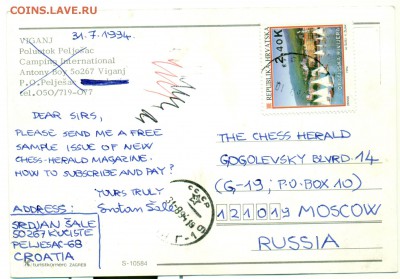 WWW.COINS.SU
VIGANJ
31.7.1994.
Poluotok Pelješac
Camping International
Antony Boy 50267 Viganj
P.O.Pelješac
tel.050/719-077
REPUBLIKA HRVATSKA
2.40K
DEAR SIRS,
PLEASE SEND ME A FREE
SAMPLE ISSUE OF NEW
CHESS-HERALD MAGAZINE.
HOW TO SUBSCRIBE AND PAY?
YOURS TRULY
ADDRESS:
SRDJAN ŠALE
50267 KUĆIŠTE
PELJEŠAC-68
CROATIA
THE CHESS HERALD
GOGOLEVSKY BLVRD 14
(G-19; P.O.BOX 10)
121019 MOSCOW
RUSSIA
СССР
S-10584